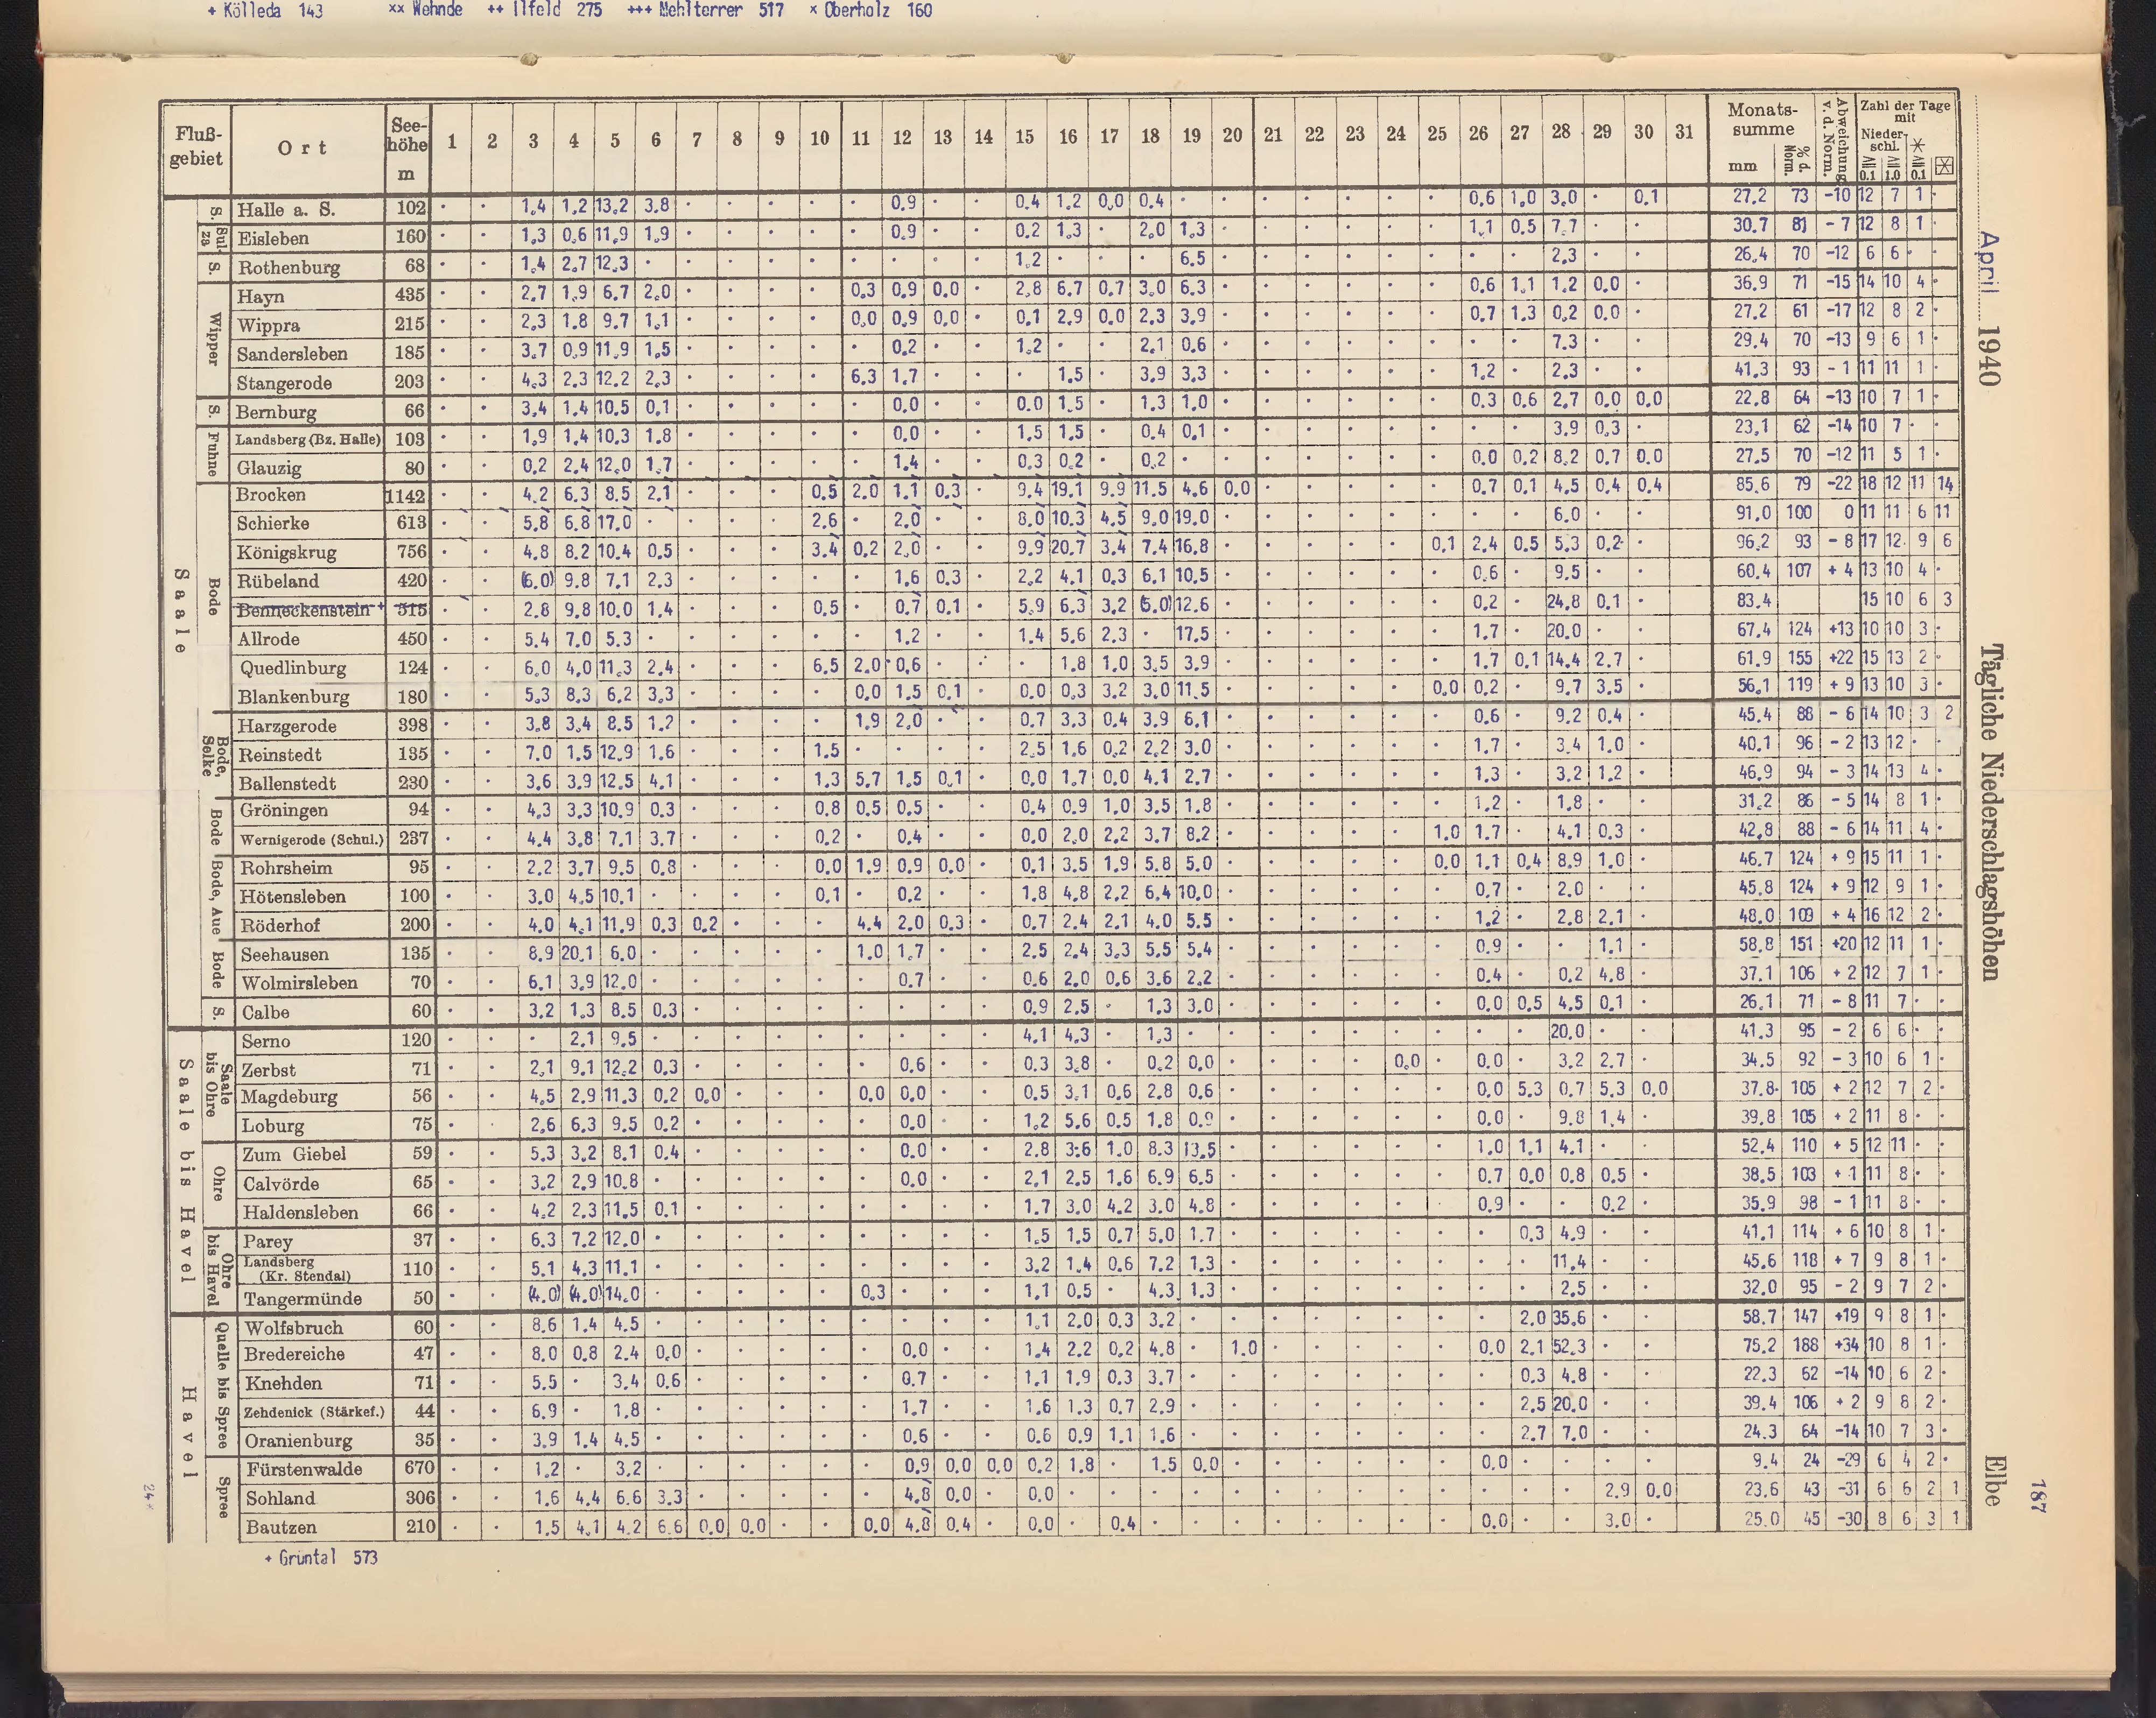 + Kölleda 143 ×× Wehnde ++ Ilfeld 275 +++ Mehlterrer 517 × Oberholz 160
Fluß-gebiet Ort Seehöhe m 1 2 3 4 5 6 7 8 9 10 11 12 13 14 15 16 17 18 19 20 21 22 23 24 25 26 27 28 29 30 31 Monats-summe mm % d. Norm. Abweichung v. d. Norm. Zahl der Tage mit Nieder-schl. ≧0.1 ≧1.0 ≧0.1
S. Halle a. S. 102 · · 1,4 1,2 13,2 3,8 · · · · · 0,9 · · 0,4 1,2 0,0 0,4 · · · · · · · 0,6 1,0 3,0 · 0,1 27,2 73 -10 12 7 1 ·
Sulza Eisleben 160 · · 1,3 0,6 11,9 1,9 · · · · · 0,9 · · 0,2 1,3 · 2,0 1,3 · · · · · · 1,1 0,5 7,7 · · 30,7 81 - 7 12 8 1 ·
S. Rothenburg 68 · · 1,4 2,7 12,3 · · · · · · · · · 1,2 · · · 6,5 · · · · · · · · 2,3 · · 26,4 70 -12 6 6 · ·
Wipper Hayn 435 · · 2,7 1,9 6,7 2,0 · · · · 0,3 0,9 0,0 · 2,8 6,7 0,7 3,0 6,3 · · · · · · 0,6 1,1 1,2 0,0 · 36,9 71 -15 14 10 4 ·
Wippra 215 · · 2,3 1,8 9,7 1,1 · · · · 0,0 0,9 0,0 · 0,1 2,9 0,0 2,3 3,9 · · · · · · 0,7 1,3 0,2 0,0 · 27,2 61 -17 12 8 2 ·
Sandersleben 185 · · 3,7 0,9 11,9 1,5 · · · · · 0,2 · · 1,2 · · 2,1 0,6 · · · · · · · · 7,3 · · 29,4 70 -13 9 6 1 ·
Stangerode 203 · · 4,3 2,3 12,2 2,3 · · · · 6,3 1,7 · · · 1,5 · 3,9 3,3 · · · · · · 1,2 · 2,3 · · 41,3 93 - 1 11 11 1 ·
S. Bernburg 66 · · 3,4 1,4 10,5 0,1 · · · · · 0,0 · · 0,0 1,5 · 1,3 1,0 · · · · · · 0,3 0,6 2,7 0,0 0,0 22,8 64 -13 10 7 1 ·
Fuhne Landsberg (Bz. Halle) 103 · · 1,9 1,4 10,3 1,8 · · · · · 0,0 · · 1,5 1,5 · 0,4 0,1 · · · · · · · · 3,9 0,3 · 23,1 62 -14 10 7 · ·
Glauzig 80 · · 0,2 2,4 12,0 1,7 · · · · · 1,4 · · 0,3 0,2 · 0,2 · · · · · · · 0,0 0,2 8,2 0,7 0,0 27,5 70 -12 11 5 1 ·
Saale Bode Brocken 1142 · · 4,2 6,3 8,5 2,1 · · · 0,5 2,0 1,1 0,3 · 9,4 19,1 9,9 11,5 4,6 0,0 · · · · · 0,7 0,1 4,5 0,4 0,4 85,6 79 -22 18 12 11 14
Schierke 613 · · 5,8 6,8 17,0 · · · · 2,6 · 2,0 · · 8,0 10,3 4,5 9,0 19,0 · · · · · · · · 6,0 · · 91,0 100 0 11 11 6 11
Königskrug 756 · · 4,8 8,2 10,4 0,5 · · · 3,4 0,2 2,0 · · 9,9 20,7 3,4 7,4 16,8 · · · · · 0,1 2,4 0,5 5,3 0,2 · 96,2 93 - 8 17 12 9 6
Rübeland 420 · · (6,0) 9,8 7,1 2,3 · · · · · 1,6 0,3 · 2,2 4,1 0,3 6,1 10,5 · · · · · · 0,6 · 9,5 · · 60,4 107 + 4 13 10 4 ·
Benneckenstein + 515 · · 2,8 9,8 10,0 1,4 · · · 0,5 · 0,7 0,1 · 5,9 6,3 3,2 (5,0) 12,6 · · · · · · 0,2 · 24,8 0,1 · 83,4 15 10 6 3
Allrode 450 · · 5,4 7,0 5,3 · · · · · · 1,2 · · 1,4 5,6 2,3 · 17,5 · · · · · · 1,7 · 20,0 · · 67,4 124 +13 10 10 3 ·
Quedlinburg 124 · · 6,0 4,0 11,3 2,4 · · · 6,5 2,0 0,6 · · · 1,8 1,0 3,5 3,9 · · · · · · 1,7 0,1 14,4 2,7 · 61,9 155 +22 15 13 2 ·
Blankenburg 180 · · 5,3 8,3 6,2 3,3 · · · · 0,0 1,5 0,1 · 0,0 0,3 3,2 3,0 11,5 · · · · · 0,0 0,2 · 9,7 3,5 · 56,1 119 + 9 13 10 3 ·
Bode, Selke Harzgerode 398 · · 3,8 3,4 8,5 1,2 · · · · 1,9 2,0 · · 0,7 3,3 0,4 3,9 6,1 · · · · · · 0,6 · 9,2 0,4 · 45,4 88 - 6 14 10 3 2
Reinstedt 135 · · 7,0 1,5 12,9 1,6 · · · 1,5 · · · · 2,5 1,6 0,2 2,2 3,0 · · · · · · 1,7 · 3,4 1,0 · 40,1 96 - 2 13 12 · ·
Ballenstedt 230 · · 3,6 3,9 12,5 4,1 · · · 1,3 5,7 1,5 0,1 · 0,0 1,7 0,0 4,1 2,7 · · · · · · 1,3 · 3,2 1,2 · 46,9 94 - 3 14 13 4 ·
Bode Gröningen 94 · · 4,3 3,3 10,9 0,3 · · · 0,8 0,5 0,5 · · 0,4 0,9 1,0 3,5 1,8 · · · · · · 1,2 · 1,8 · · 31,2 86 - 5 14 8 1 ·
Wernigerode (Schul.) 237 · · 4,4 3,8 7,1 3,7 · · · 0,2 · 0,4 · · 0,0 2,0 2,2 3,7 8,2 · · · · · 1,0 1,7 · 4,1 0,3 · 42,8 88 - 6 14 11 4 ·
Bode, Aue Rohrsheim 95 · · 2,2 3,7 9,5 0,8 · · · 0,0 1,9 0,9 0,0 · 0,1 3,5 1,9 5,8 5,0 · · · · · 0,0 1,1 0,4 8,9 1,0 · 46,7 124 + 9 15 11 1 ·
Hötensleben 100 · · 3,0 4,5 10,1 · · · · 0,1 · 0,2 · · 1,8 4,8 2,2 6,4 10,0 · · · · · · 0,7 · 2,0 · · 45,8 124 + 9 12 9 1 ·
Röderhof 200 · · 4,0 4,1 11,9 0,3 0,2 · · · 4,4 2,0 0,3 · 0,7 2,4 2,1 4,0 5,5 · · · · · · 1,2 · 2,8 2,1 · 48,0 109 + 4 16 12 2 ·
Bode Seehausen 135 · · 8,9 20,1 6,0 · · · · · 1,0 1,7 · · 2,5 2,4 3,3 5,5 5,4 · · · · · · 0,9 · · 1,1 · 58,8 151 +20 12 11 1 ·
Wolmirsleben 70 · · 6,1 3,9 12,0 · · · · · · 0,7 · · 0,6 2,0 0,6 3,6 2,2 · · · · · · 0,4 · 0,2 4,8 · 37,1 106 + 2 12 7 1 ·
S. Calbe 60 · · 3,2 1,3 8,5 0,3 · · · · · · · · 0,9 2,5 · 1,3 3,0 · · · · · · 0,0 0,5 4,5 0,1 · 26,1 71 - 8 11 7 · ·
Saale bis Havel Saale bis Ohre Serno 120 · · · 2,1 9,5 · · · · · · · · · 4,1 4,3 · 1,3 · · · · · · · · · 20,0 · · 41,3 95 - 2 6 6 · ·
Zerbst 71 · · 2,1 9,1 12,2 0,3 · · · · · 0,6 · · 0,3 3,8 · 0,2 0,0 · · · · 0,0 · 0,0 · 3,2 2,7 · 34,5 92 - 3 10 6 1 ·
Magdeburg 56 · · 4,5 2,9 11,3 0,2 0,0 · · · 0,0 0,0 · · 0,5 3,1 0,6 2,8 0,6 · · · · · · 0,0 5,3 0,7 5,3 0,0 37,8 105 + 2 12 7 2 ·
Loburg 75 · · 2,6 6,3 9,5 0,2 · · · · · 0,0 · · 1,2 5,6 0,5 1,8 0,9 · · · · · · 0,0 · 9,8 1,4 · 39,8 105 + 2 11 8 · ·
Ohre Zum Giebel 59 · · 5,3 3,2 8,1 0,4 · · · · · 0,0 · · 2,8 3,6 1,0 8,3 13,5 · · · · · · 1,0 1,1 4,1 · · 52,4 110 + 5 12 11 · ·
Calvörde 65 · · 3,2 2,9 10,8 · · · · · · 0,0 · · 2,1 2,5 1,6 6,9 6,5 · · · · · · 0,7 0,0 0,8 0,5 · 38,5 103 + 1 11 8 · ·
Haldensleben 66 · · 4,2 2,3 11,5 0,1 · · · · · · · · 1,7 3,0 4,2 3,0 4,8 · · · · · · 0,9 · · 0,2 · 35,9 98 - 1 11 8 · ·
Ohre bis Havel Parey 37 · · 6,3 7,2 12,0 · · · · · · · · · 1,5 1,5 0,7 5,0 1,7 · · · · · · · 0,3 4,9 · · 41,1 114 + 6 10 8 1 ·
Landsberg (Kr. Stendal) 110 · · 5,1 4,3 11,1 · · · · · · · · · 3,2 1,4 0,6 7,2 1,3 · · · · · · · · 11,4 · · 45,6 118 + 7 9 8 1 ·
Tangermünde 50 · · (4,0) (4,0) 14,0 · · · · · 0,3 · · · 1,1 0,5 · 4,3 1,3 · · · · · · · · 2,5 · · 32,0 95 - 2 9 7 2 ·
Havel Quelle bis Spree Wolfsbruch 60 · · 8,6 1,4 4,5 · · · · · · · · · 1,1 2,0 0,3 3,2 · · · · · · · · 2,0 35,6 · · 58,7 147 +19 9 8 1 ·
Bredereiche 47 · · 8,0 0,8 2,4 0,0 · · · · · 0,0 · · 1,4 2,2 0,2 4,8 · 1,0 · · · · · 0,0 2,1 52,3 · · 75,2 188 +34 10 8 1 ·
Knehden 71 · · 5,5 · 3,4 0,6 · · · · · 0,7 · · 1,1 1,9 0,3 3,7 · · · · · · · · 0,3 4,8 · · 22,3 62 -14 10 6 2 ·
Zehdenick (Stärkef.) 44 · · 6,9 · 1,8 · · · · · · 1,7 · · 1,6 1,3 0,7 2,9 · · · · · · · · 2,5 20,0 · · 39,4 106 + 2 9 8 2 ·
Oranienburg 35 · · 3,9 1,4 4,5 · · · · · · 0,6 · · 0,6 0,9 1,1 1,6 · · · · · · · · 2,7 7,0 · · 24,3 64 -14 10 7 3 ·
Spree Fürstenwalde 670 · · 1,2 · 3,2 · · · · · · 0,9 0,0 0,0 0,2 1,8 · 1,5 0,0 · · · · · · 0,0 · · · · 9,4 24 -29 6 4 2 ·
Sohland 306 · · 1,6 4,4 6,6 3,3 · · · · · 4,8 0,0 · 0,0 · · · · · · · · · · · · · 2,9 0,0 23,6 43 -31 6 6 2 1
Bautzen 210 · · 1,5 4,1 4,2 6,6 0,0 0,0 · · 0,0 4,8 0,4 · 0,0 · 0,4 · · · · · · · · 0,0 · · 3,0 · 25,0 45 -30 8 6 3 1
+ Grüntal 573
24*
April 1940
Tägliche Niederschlagshöhen
Elbe
187